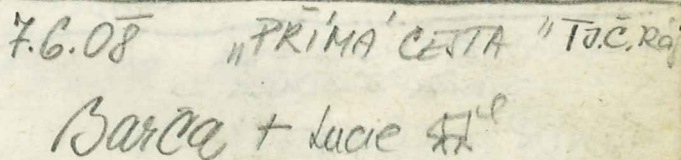 7.6.08 „PŘÍMÁ CESTA“ TJ.Č.Ráj
Barča + Lucie